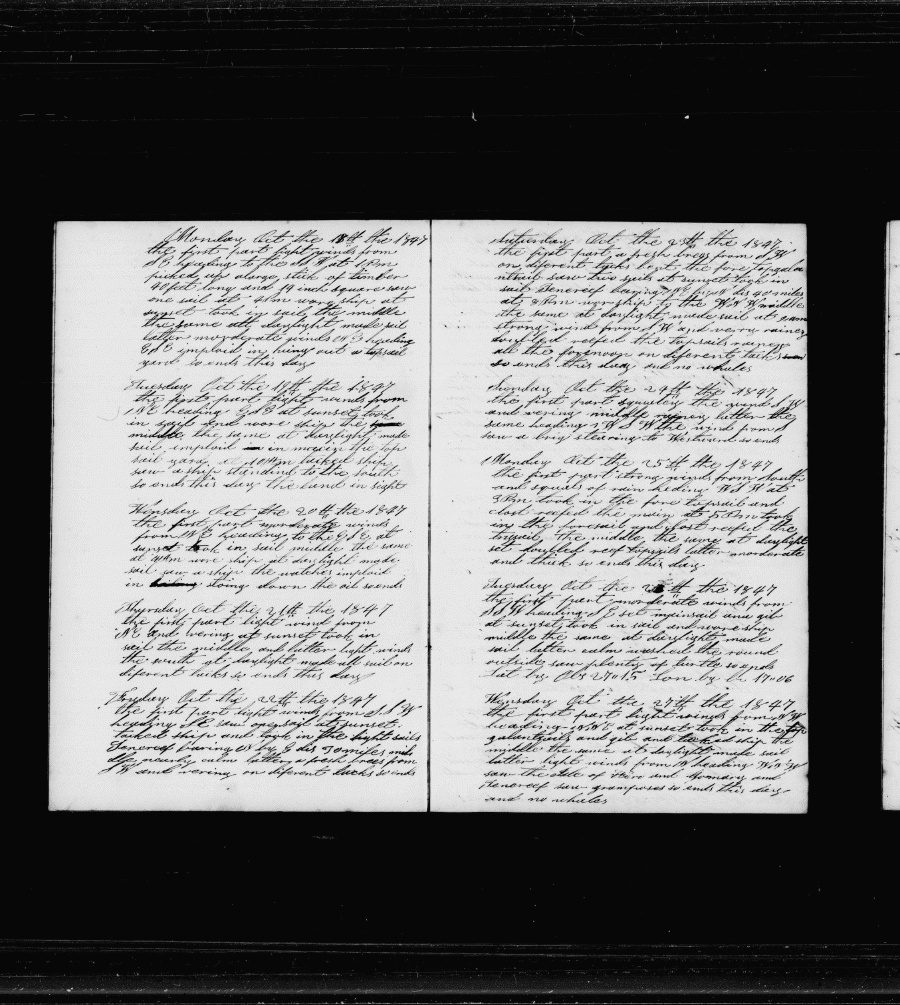 Monday Oct the 18th the 1847
the first part light winds from
heading to the at 1 Pm
picked up a large stick of timber
40 feet long and 14 inch square saw
one sail at 4 Am wore ship at
sunset took in sail the middle
the same att daylight made sail
latter morderate winds heading
imploid in hieng out a topsail
yard so ends this day
Tuesday Oct the 19th the 1847
the first part light winds from
NE heading at sunset took
in sail and wore ship the
middle the same at daylight made
sail imploid in the top
sail yard at 10 Am tacked ship
saw a ship standing to the
so ends this day the land in sight
Wensday Oct the 20th the 1847
the first part morderate winds
from heading to the at
sunset took in sail middle the same
at 4 Am wore ship at daylight made
sail saw a ship the watches imploid
in stoing down the oil so ends
Thursday Oct the 21th the 1847
the first part light wind from
NE and vering at sunset took in
sail the middle and latter light winds
the south at daylight made all sail on
diferent tacks so ends this day
Fryday Oct the 22th the 1847
the first part light winds from S S W
heading saw one sail at sunset
tacked ship and took in the light sails
Tenereef baring by E dis 30 miles mid
dle nearly calm latter a fresh brees from
S W and vering on diferent tacks so ends
Saturday Oct the 23th the 1847
the first part a fresh brees from S W
on diferent tacks bent the fore topgalan
sail saw two sails at sunset took in
sail Tenereef bearing dis 40 miles
at 8 Pm wor ship to the middle
the same at daylight made sail at
strong wind from S W and verry rainey
doubled reefed the topsails
all the forenoon on diferent tacks
so ends this day and no whales
Sunday Oct the 24th the 1847
the first part squaley the wind S W
and vering middle latter the
same heading W S W the wind from S
saw a brig steering to Westward so ends
Monday Oct the 25th the 1847
the first part strong winds from South
and squals of rain heding W S W at
3 Pm took in the fore topsail and
clost reefed the main at 5 Pm took
in the foresail and clost reefed the
trysail the middle the same at daylight
set doubled reef topsails latter morderate
and thick so ends this day
Tuesday Oct the 26th the 1847
the first part morderate winds from
S S W heading set mainsail and gib
at sunset took in sail and wore ship
middle the same at daylight made
sail latter calm washed the round
outside saw plenty of turtle so ends
Lat by Obs 27=15 Lon by 17=06
Wensday Oct the 27th the 1847
the first part light winds from
heading at sunset took in the top
galantsails and gib and tacked ship the
middle the same at daylight made sail
latter light winds from W heading
saw the of and and
Tenereef saw gramposes so ends this day
and no whales